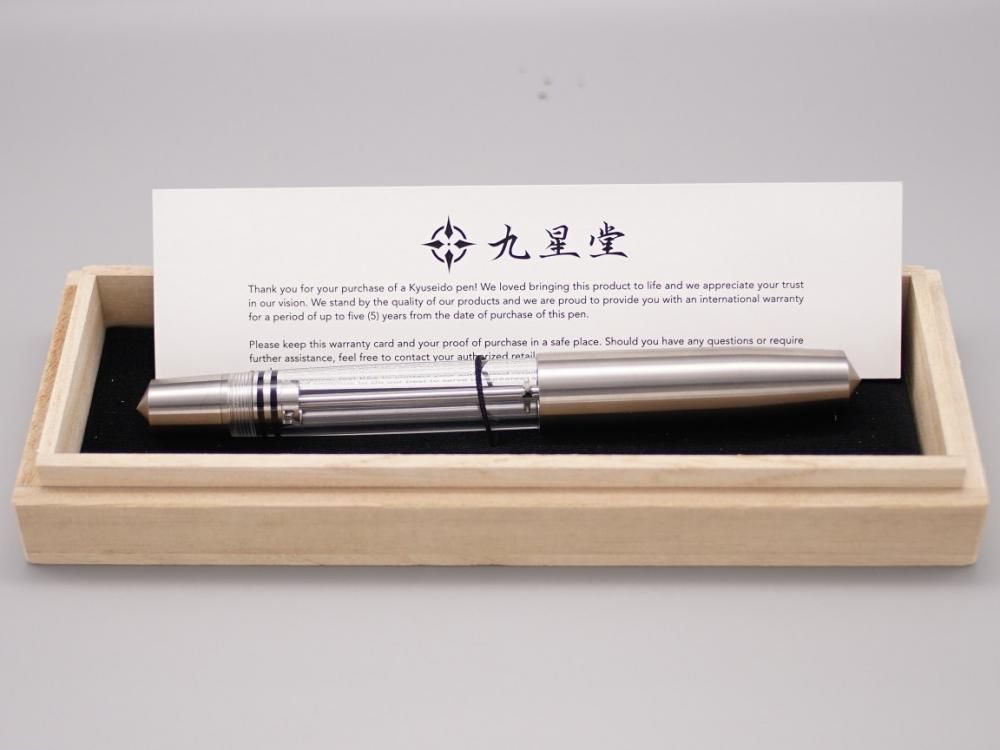 九星堂
Thank you for your purchase of a Kyuseido pen! We loved bringing this product to life and we appreciate your trust
in our vision. We stand by the quality of our products and we are proud to provide you with an international warranty
for a period of up to five (5) years from the date of purchase of this pen.
Please keep this warranty card and your proof of purchase in a safe place. Should you have any questions or require
further assistance, feel free to contact your authorized retail